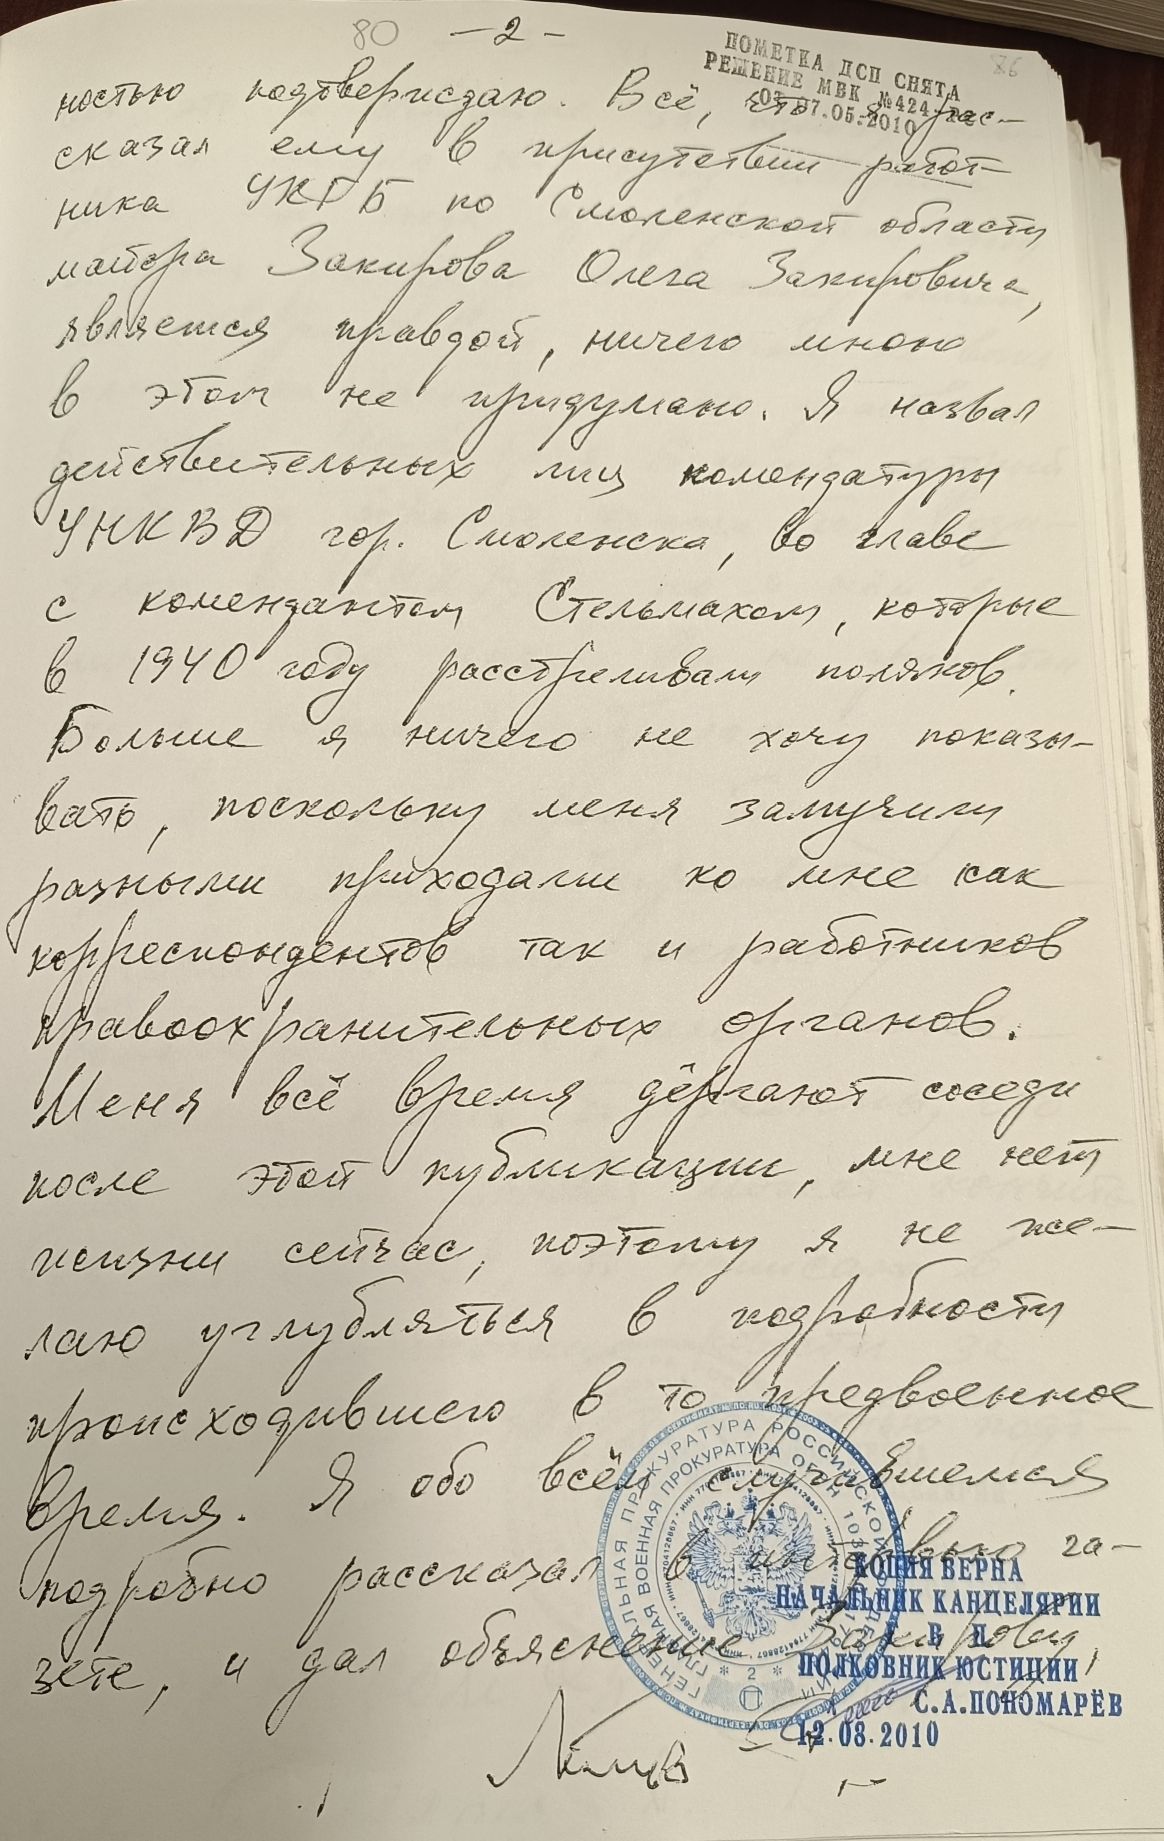 80 — 2 — 86
ПОМЕТКА ДСП СНЯТА
РЕШЕНИЕ МВК №424-
07.05.2010
ностью подтверждаю. Всё, что я рас-
сказал ему в присутствии работ-
ника УКГБ по Смоленской области
майора Закирова Олега Закировича,
является правдой, ничего мною
в этом не придумано. Я назвал
действительных лиц комендатуры
УНКВД гор. Смоленска, во главе
с комендантом Стельмахом, которые
в 1940 году расстреливали поляков.
Больше я ничего не хочу показы-
вать, поскольку меня замучили
разными приходами ко мне как
корреспондентов так и работников
правоохранительных органов.
Меня всё время дёргают соседи
после этой публикации, мне нет
жизни сейчас, поэтому я не же-
лаю углубляться в подробности
происходившего в то предвоенное
время. Я обо всём случившемся
подробно рассказал в интервью га-
зете, и дал объяснение Закирову.
ГЕНЕРАЛЬНАЯ ПРОКУРАТУРА РОССИЙСКОЙ ФЕДЕРАЦИИ
ГЛАВНАЯ ВОЕННАЯ ПРОКУРАТУРА ОГРН
* 2 *
КОПИЯ ВЕРНА
НАЧАЛЬНИК КАНЦЕЛЯРИИ
Г В П
ПОЛКОВНИК ЮСТИЦИИ
С.А.ПОНОМАРЁВ
12.08.2010